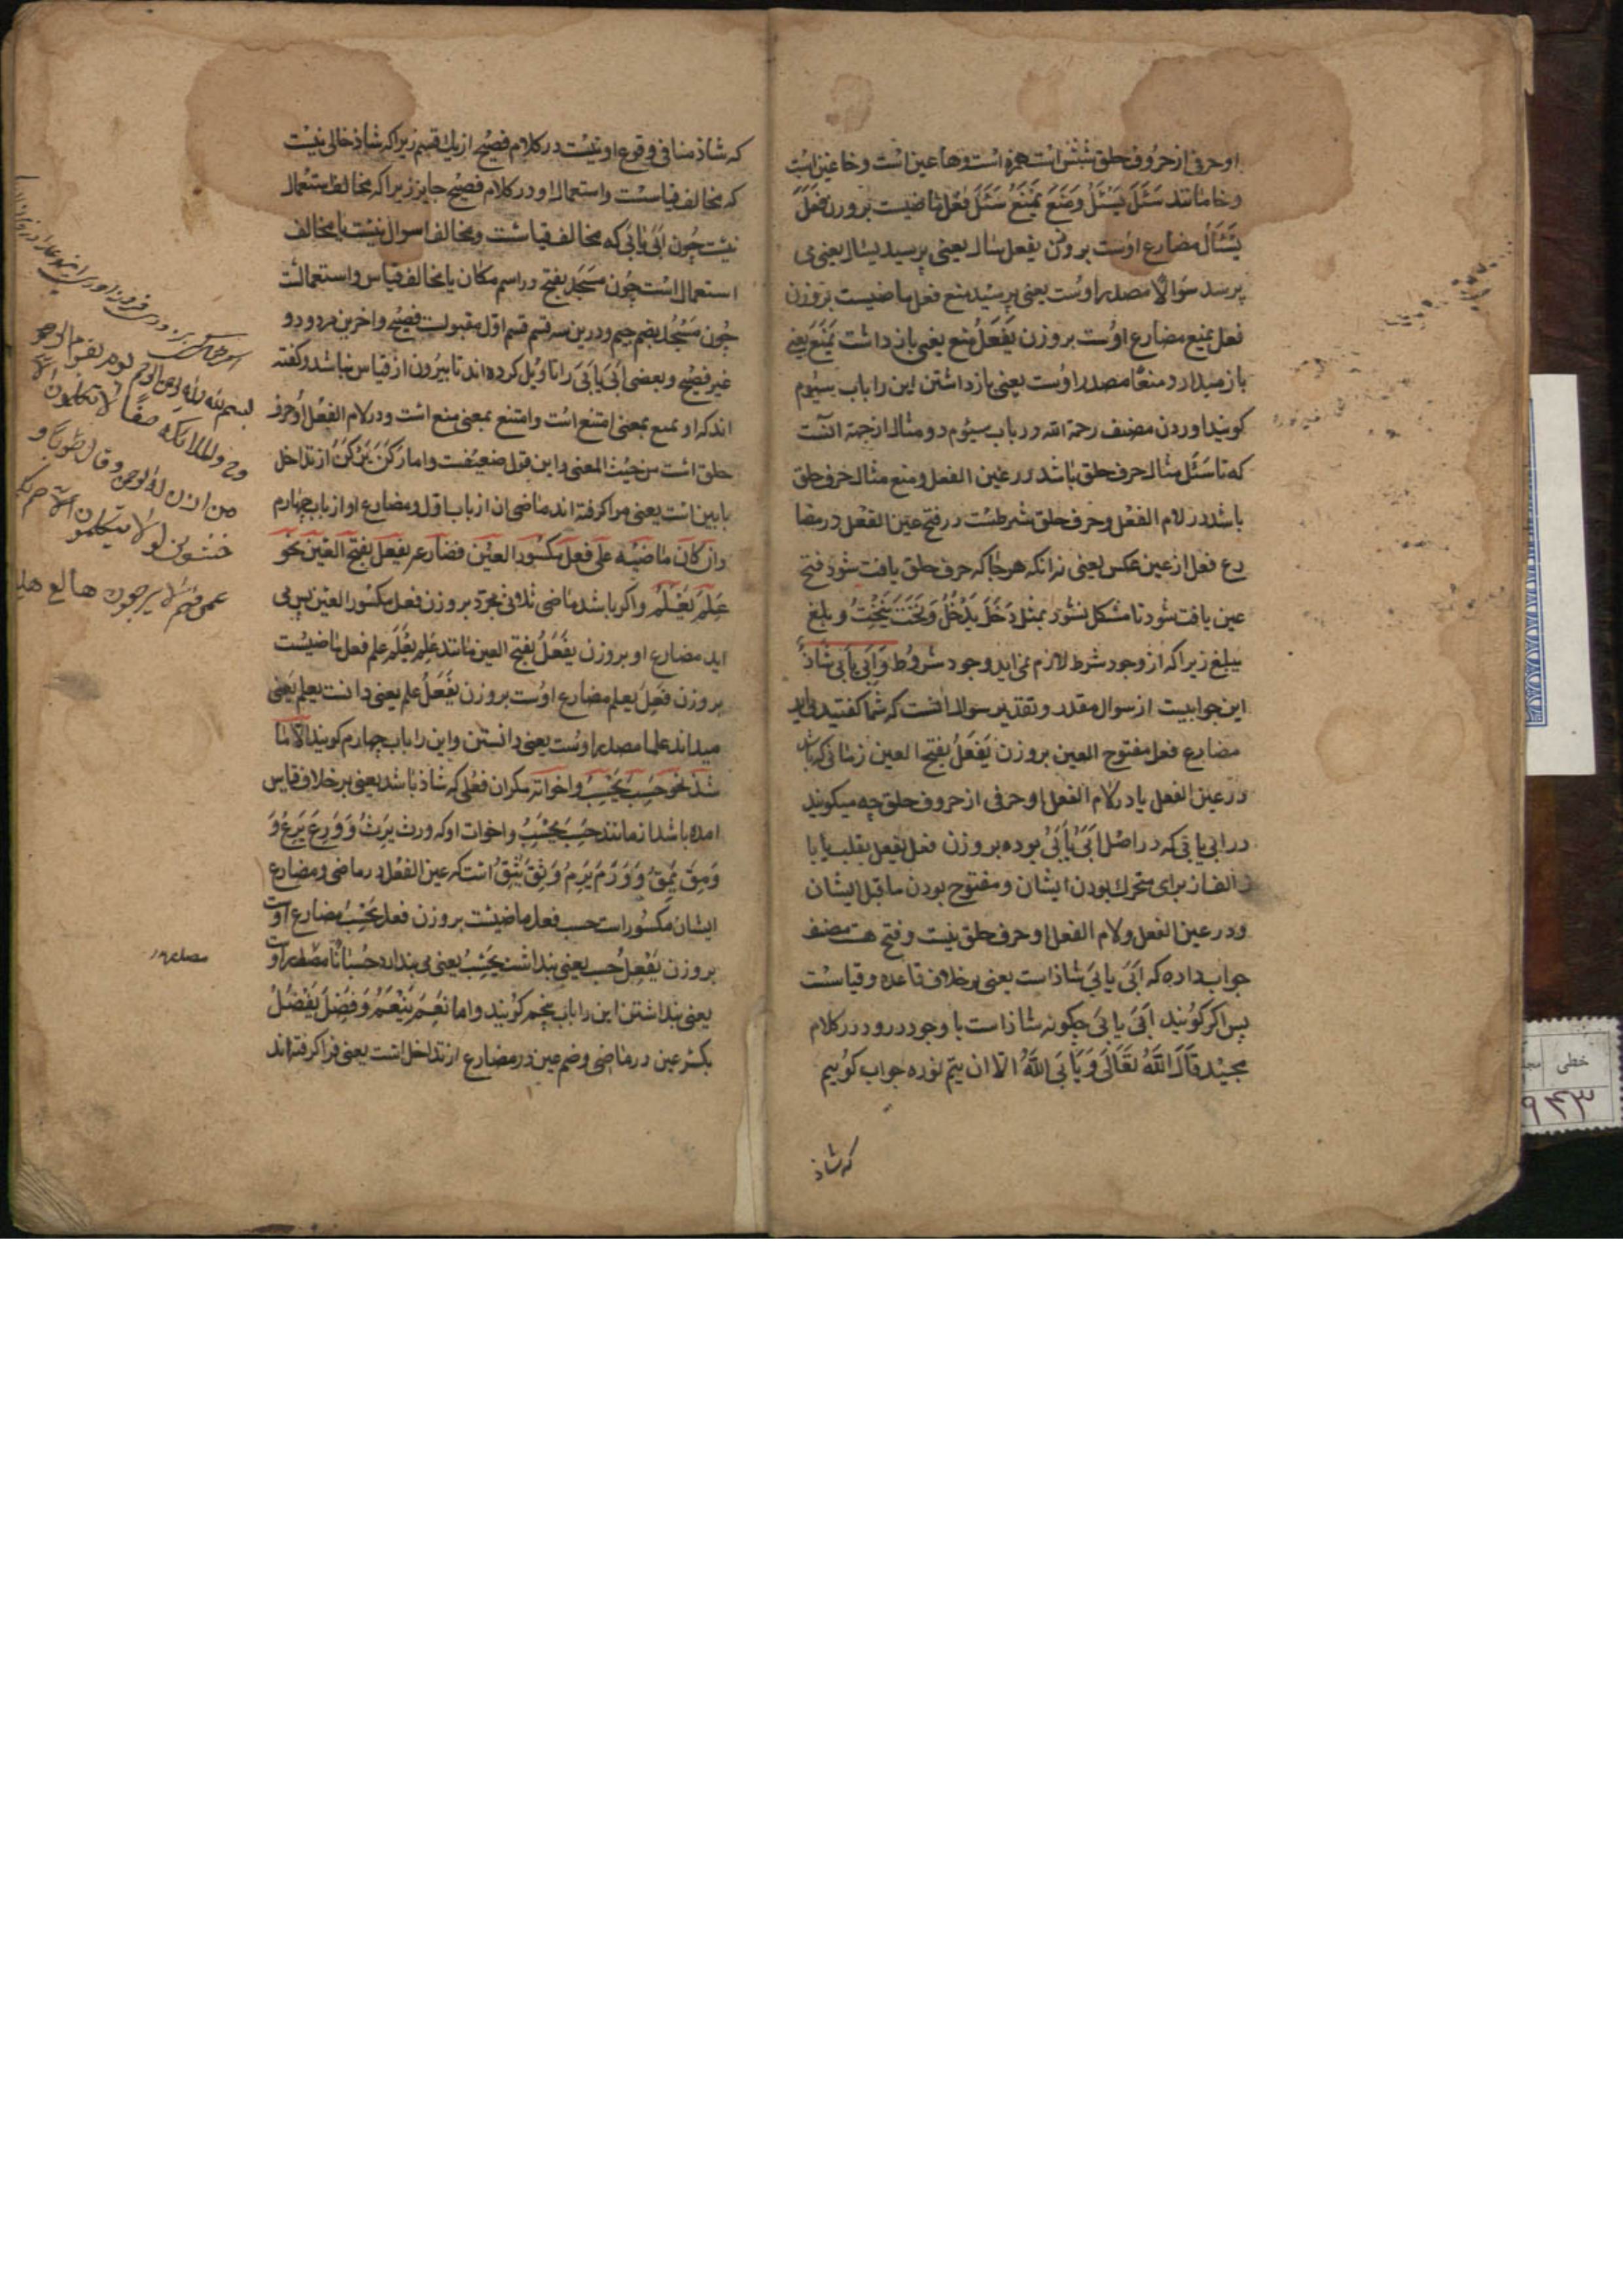 او حرفی از حروف حلق شش است همزه است و ها عین است و حا غین است
و خا مانند سَئَلَ یَسْئَلُ وَمَنَعَ یَمْنَعُ سَئَلَ فعل ماضیست بر وزن فَعَلَ
یَسْئَلُ مضارع اوست بر وزن یفعل سال یعنی پرسید یسال یعنی می
پرسد سؤالا مصدر اوست یعنی پرسید منع فعل ماضیست بر وزن
فعل یمنع مضارع اوست بر وزن یَفْعَلُ منع یعنی باز داشت یَمْنَعُ یعنی
باز میدارد منعًا مصدر اوست یعنی باز داشتن این را باب سیوم
کویند اوردن مصنف رحمة الله در باب سیوم دو مثال از جهة آنست
که تا سَئَلَ مثال حرف حلق باشد در عین الفعل و منع مثال حرف حلق
باشد در لام الفعل و حرف حلق شرطست در فتح عین الفعل در مضا
رع فعل از عین عکس یعنی نه انکه هر جا که حرف حلق یافت شود فتح
عین یافت شود تا مشکل نشود بمثل دَخَلَ یَدْخُلُ وَنَحَتَ یَنْحِتُ و بلغ
یبلغ زیرا که از وجود شرط لازم نمی اید وجود مشروط وَاَبَی یَاْبَی شَاذٌّ
این جوابیست از سوال مقدر و تقدیر سوال انست که شما کفتید می اید
مضارع فعل مفتوح العین بر وزن یَفْعَلُ بفتح العین زمانی که باشد
در عین الفعل یا در لام الفعل او حرفی از حروف حلق چه میکویند
در ابی یابی که در اصل اَبَیَ یَاْبَیُ بوده بر وزن فعل یفعل بقلب یا با
الف از برای متحرک بودن ایشان و مفتوح بودن ماقبل ایشان
و در عین الفعل و لام الفعل او حرف حلق نیست و فتح هست مصنف
جواب داده که اَبَیَ یابَیَ شاذ است یعنی بر خلاف قاعده و قیاسست
پس اکر کویند اَبَیَ یابَیَ چکونه شاذ است با وجود ورود در کلام
مجید قَالَ اللّٰهُ تَعَالَی وَیَابَی اللّٰهُ الّا ان یتم نوره جواب کوییم
که شاذ
که شاذ منافی وقوع او نیست در کلام فصیح از یک قسم زیرا که شاذ خالی نیست
که مخالف قیاسست و استعمال او در کلام فصیح جایز زیرا که مخالف استعمال
نیست چون اَبَی یابَی که مخالف قیاست و مخالف اسوال نیست یا مخالف
استعمال است چون مَسْجَد بفتح در اسم مکان یا مخالف قیاس و استعمالست
چون مَسْجُد بضم جیم و درین سه قسم قسم اوّل مقبولست فصیح و اخرین مردود و
غیر فصیح و بعضی اَبَیَ یابَیَ را تاویل کرده اند تا بیرون از قیاس نباشد و کفته
اند که او بمعنی امتنع است و امتنع بمعنی منع است و در لام الفعل او حرف
حلق است من حیث المعنی و این قول ضعیفست و اما رَکَنَ یَرْکَنُ از تداخل
بابین است یعنی فرا کرفته اند ماضی ان از باب اول و مضارع او از باب چهارم
وان کان ماضیه علی فعل مکسور العین فضارعه یفعل بفتح العین نحو
عَلِمَ یَعْلَمُ و اکر باشد ماضی ثلاثی مجرّد بر وزن فعل مکسور العین پس می
اید مضارع او بر وزن یَفْعَلُ بفتح العین مانند عَلِمَ یَعْلَمُ علم فعل ماضیست
بر وزن فَعِلَ یعلم مضارع اوست بر وزن یَفْعَلُ علم یعنی دانست یعلم یعنی
میداند علما مصدر اوست یعنی دانستن و این را باب چهارم کویند الّا ما
شذ نحو حَسِبَ یَحْسِبُ و اخواته مکر ان فعلی که شاذ باشد یعنی بر خلاف قیاس
امده باشد از مانند حَسِبَ یَحْسِبُ و اخوات او که ورث یَرِثُ وَوَرِعَ یَرِعُ وَ
وَمِقَ یَمِقُ وَوَرِمَ یَرِمُ وَثِقَ یَثِقُ است که عین الفعل در ماضی و مضارع
ایشان مکسور است حسب فعل ماضیست بر وزن فعل یَحْسِبُ مضارع اوست
بر وزن یَفْعِلُ حسب یعنی پنداشت یَحْسِبُ یعنی می پندارد حُسْبَانًا مصدر اوست
یعنی پنداشتن این را باب پنجم کویند و اما نَعِمَ یَنْعُمُ وَفَضِلَ یَفْضُلُ
بکسر عین در ماضی و ضم عین در مضارع از تداخل است یعنی فرا کرفته اند
بسم الله الرحمن الرحیم یوم یقوم الروح
والملائکة صفًّا لا یتکلمون الا
من اذن له الرحمن وقال صوابا
خطی
۹۴۳